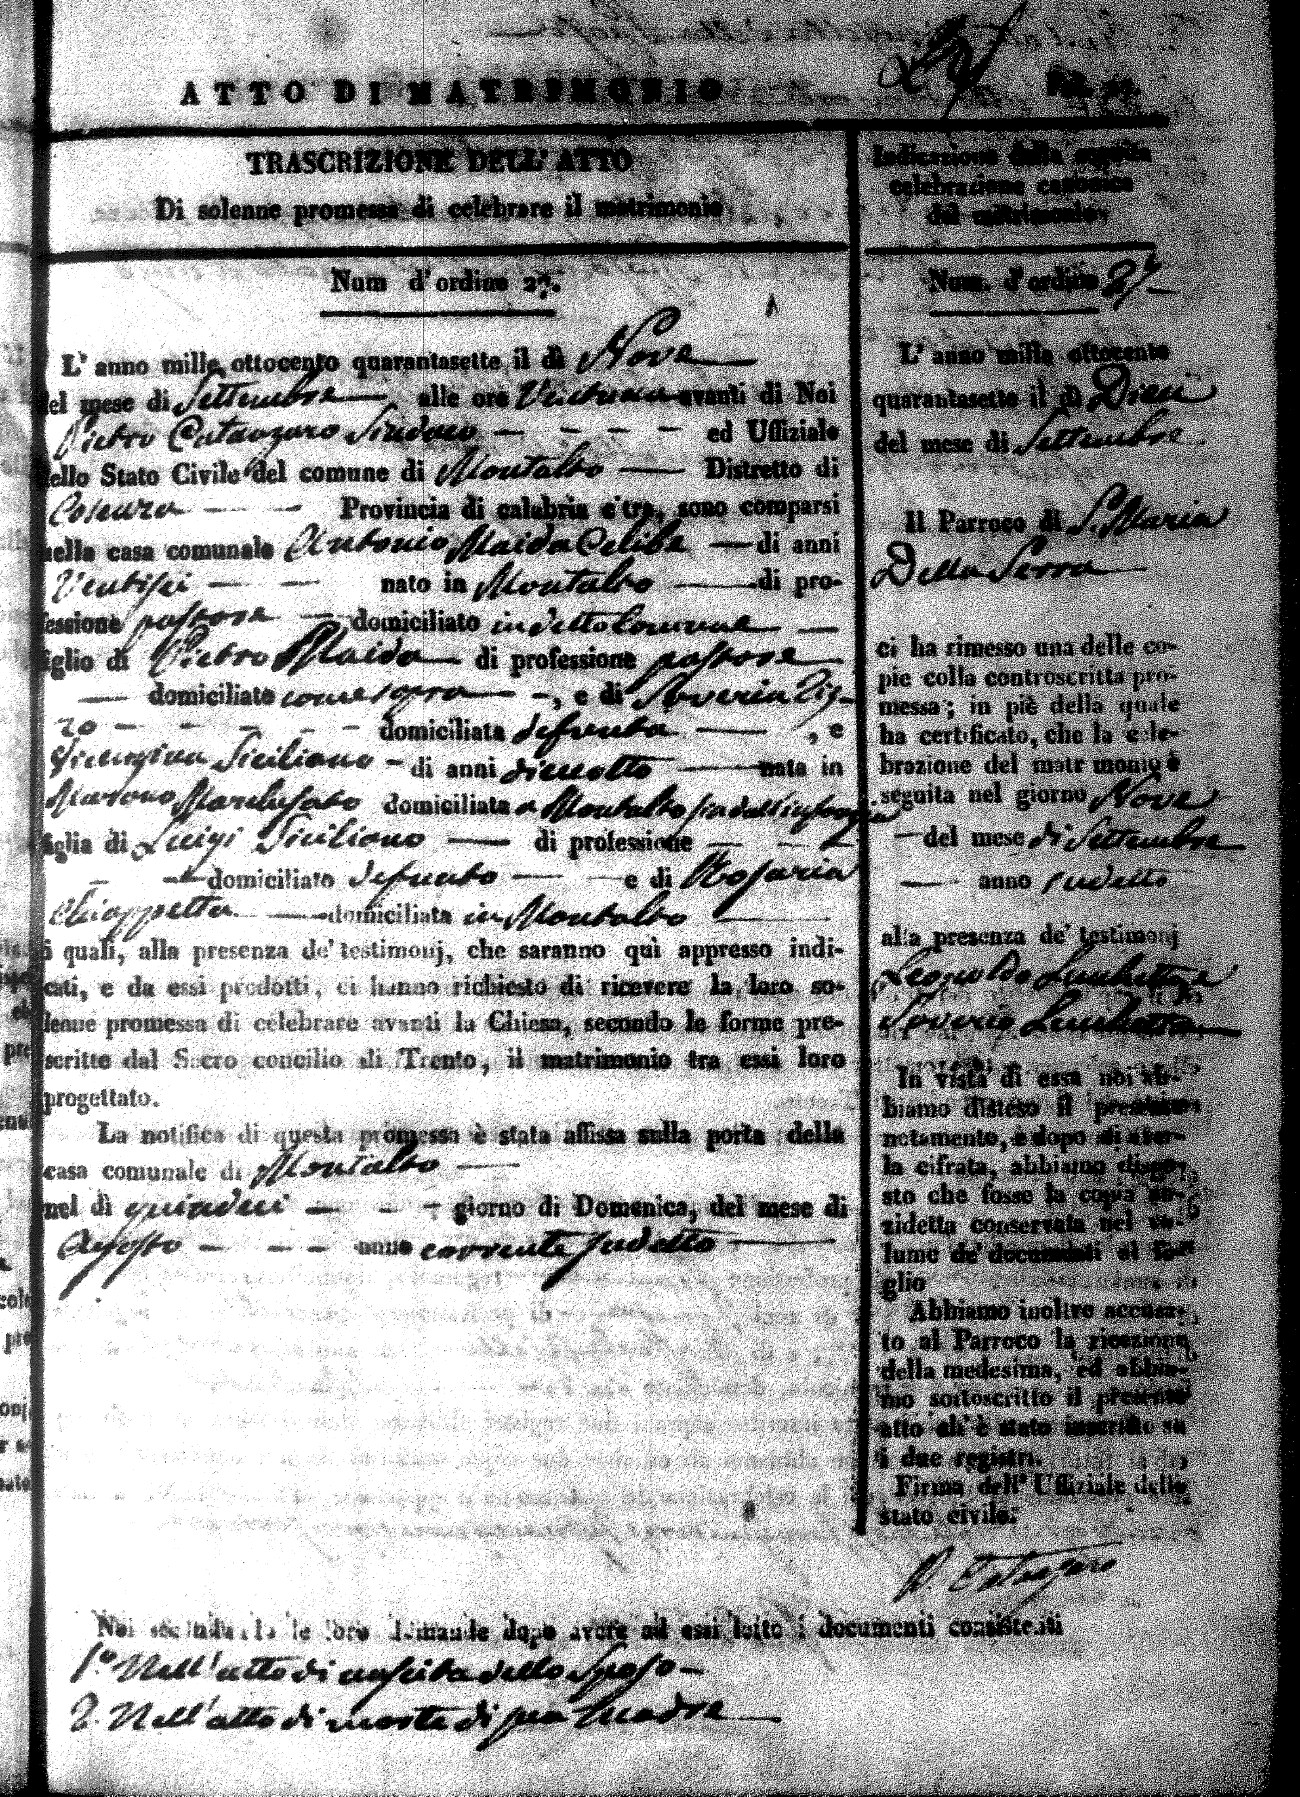 ATTO DI MATRIMONIO
TRASCRIZIONE DELL'ATTO
Di solenne promessa di celebrare il matrimonio
Num d'ordine 27.
L'anno mille ottocento quarantasette il dì Nove
del mese di Settembre alle ore Ventuna avanti di Noi
Pietro Catanzaro Sindaco ed Uffiziale
dello Stato Civile del comune di Montalto Distretto di
Cosenza Provincia di calabria citra, sono comparsi
nella casa comunale Antonio Maida Celibe di anni
Ventisei nato in Montalto di pro-
fessione pastore domiciliato in detto Comune
figlio di Pietro Maida di professione pastore
domiciliato come sopra, e di Saveria
domiciliata defunta, e
Siciliano di anni dieciotto nata in
Marano Marchesato domiciliata a Montalto sin dall'infanzia
figlia di Luigi Siciliano di professione
domiciliato defunto e di Rosaria
Chiappetta domiciliata in Montalto
i quali, alla presenza de' testimonj, che saranno quì appresso indi-
cati, e da essi prodotti, ci hanno richiesto di ricevere la loro so-
lenne promessa di celebrare avanti la Chiesa, secondo le forme pre-
scritte dal Sacro concilio di Trento, il matrimonio tra essi loro
progettato.
La notifica di questa promessa è stata affissa sulla porta della
casa comunale di Montalto
nel dì quindici giorno di Domenica, del mese di
Agosto anno corrente sudetto
Indicazione della seguita
celebrazione canonica
del matrimonio
Num. d'ordine 27
L'anno mille ottocento
quarantasette il dì Dieci
del mese di Settembre
Il Parroco di S. Maria
Della Serra
ci ha rimesso una delle co-
pie colla controscritta pro-
messa; in piè della quale
ha certificato, che la cele-
brazione del matrimonio è
seguita nel giorno Nove
del mese di Settembre
anno sudetto
alla presenza de' testimonj
Leopoldo Lucchetta e
Saverio Lucchetta
In vista di essa noi ab-
biamo disteso il presente
notamento, e dopo di aver-
la cifrata, abbiamo dispo-
sto che fosse la copia an-
zidetta conservata nel vo-
lume de' documenti al fo-
glio
Abbiamo inoltre accusa-
to al Parroco la ricezione
della medesima, ed abbia-
mo sottoscritto il presente
atto ch'è stato inscritto su
i due registri.
Firma dell'Uffiziale dello
stato civile:
P. Catanzaro
Noi secondando le loro dimande dopo avere ad essi letto i documenti consistenti
1.º Nell'atto di nascita dello Sposo
2. Nell'atto di morte di sua Madre